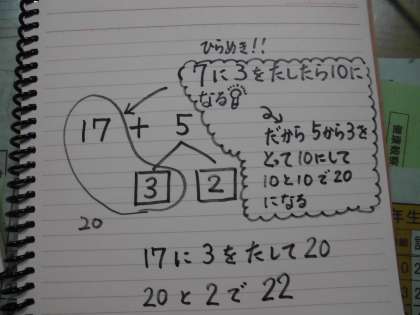 ひらめき!!
7に3をたしたら10に
なる
だから5から3を
とって10にして
10と10で20
になる
17 + 5
3 2
20
17に3をたして20
20と2で22